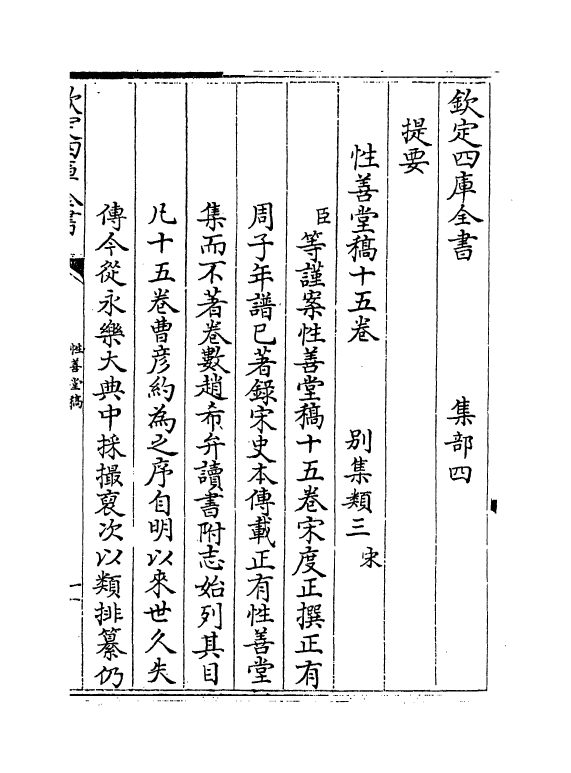 欽定四庫全書　　集部四
提要
性善堂稿十五卷　　別集類三宋
臣等謹案性善堂稿十五卷宋度正撰正有
周子年譜已著錄宋史本傳載正有性善堂
集而不著卷數趙希弁讀書附志始列其目
凡十五卷曹彦約為之序自明以來世久失
傳今從永樂大典中採撮裒次以類排纂仍
欽定四庫全書
性善堂稿
一